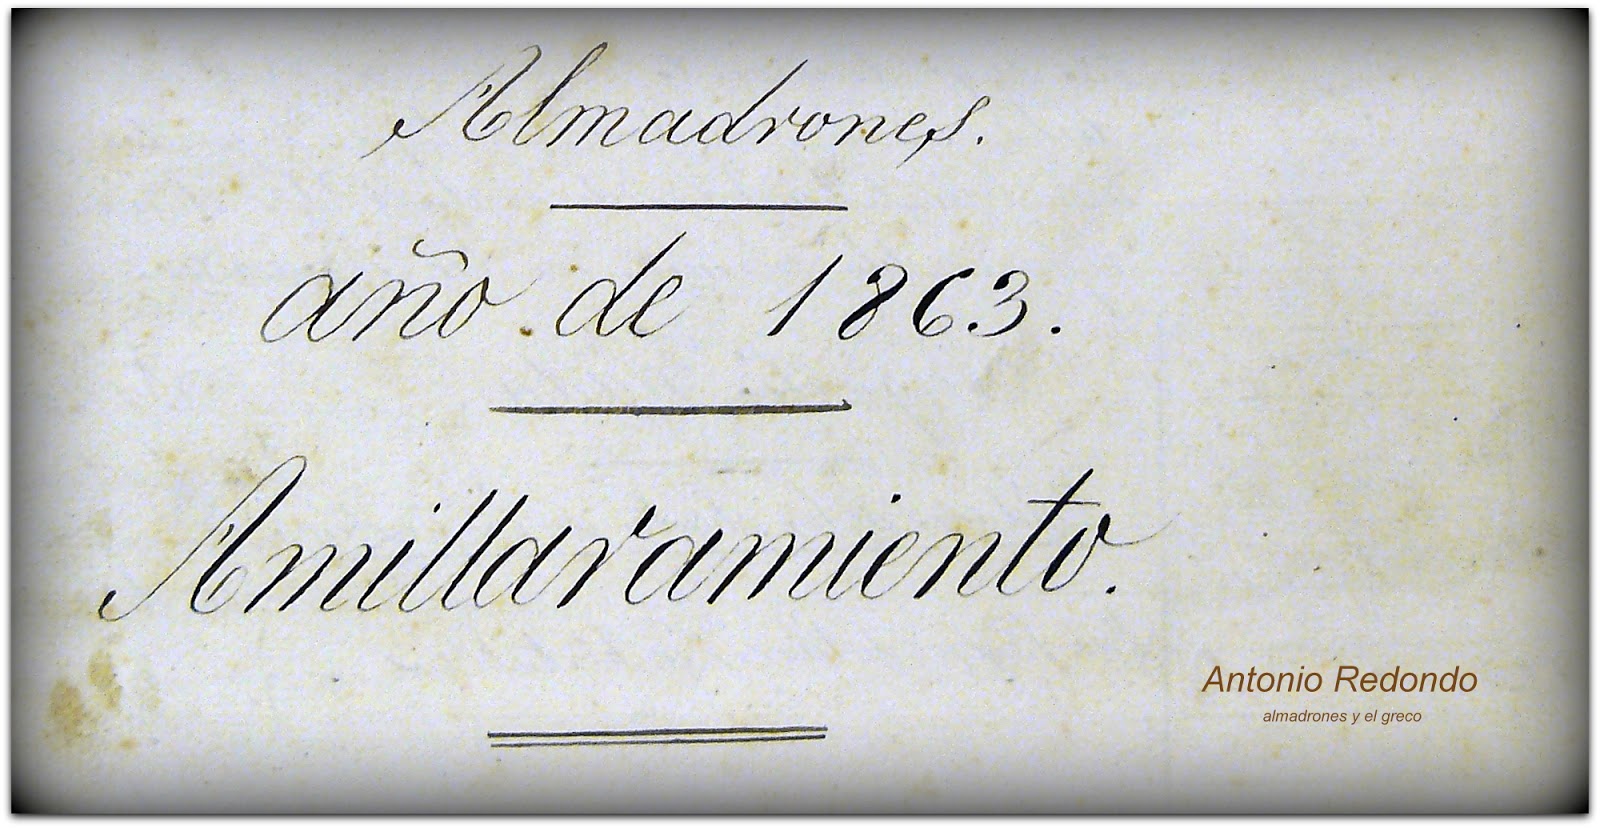 Almadrones.
año de 1863.
Amillaramiento.
Antonio Redondo
almadrones y el greco